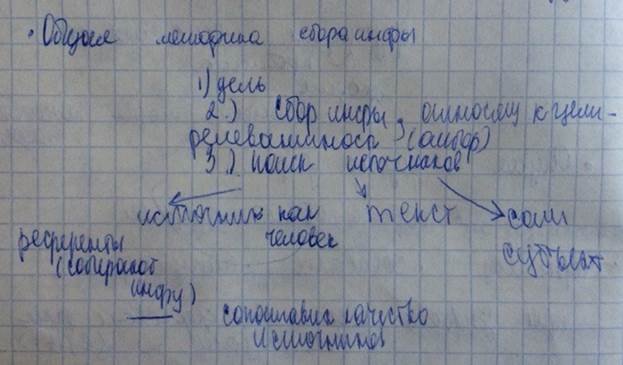 · Общая методика сбора инфы
1) цель
2.) сбор инфы, относящ к цели -
релевантность (отбор)
3.) поиск источников
источник как текст сам
человек субъект
референты
(собирают
инфу)
сопоставить качество
источников